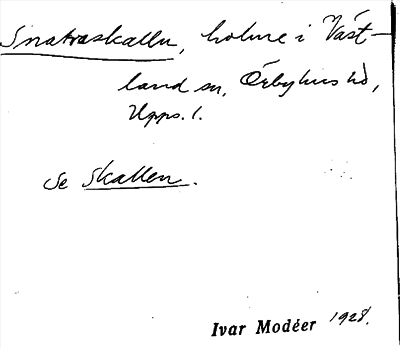 Snatraskallen, holme i Väst-
land sn, Örbyhus hd,
Upps. l.
se Skallen.
Ivar Modéer 1928.